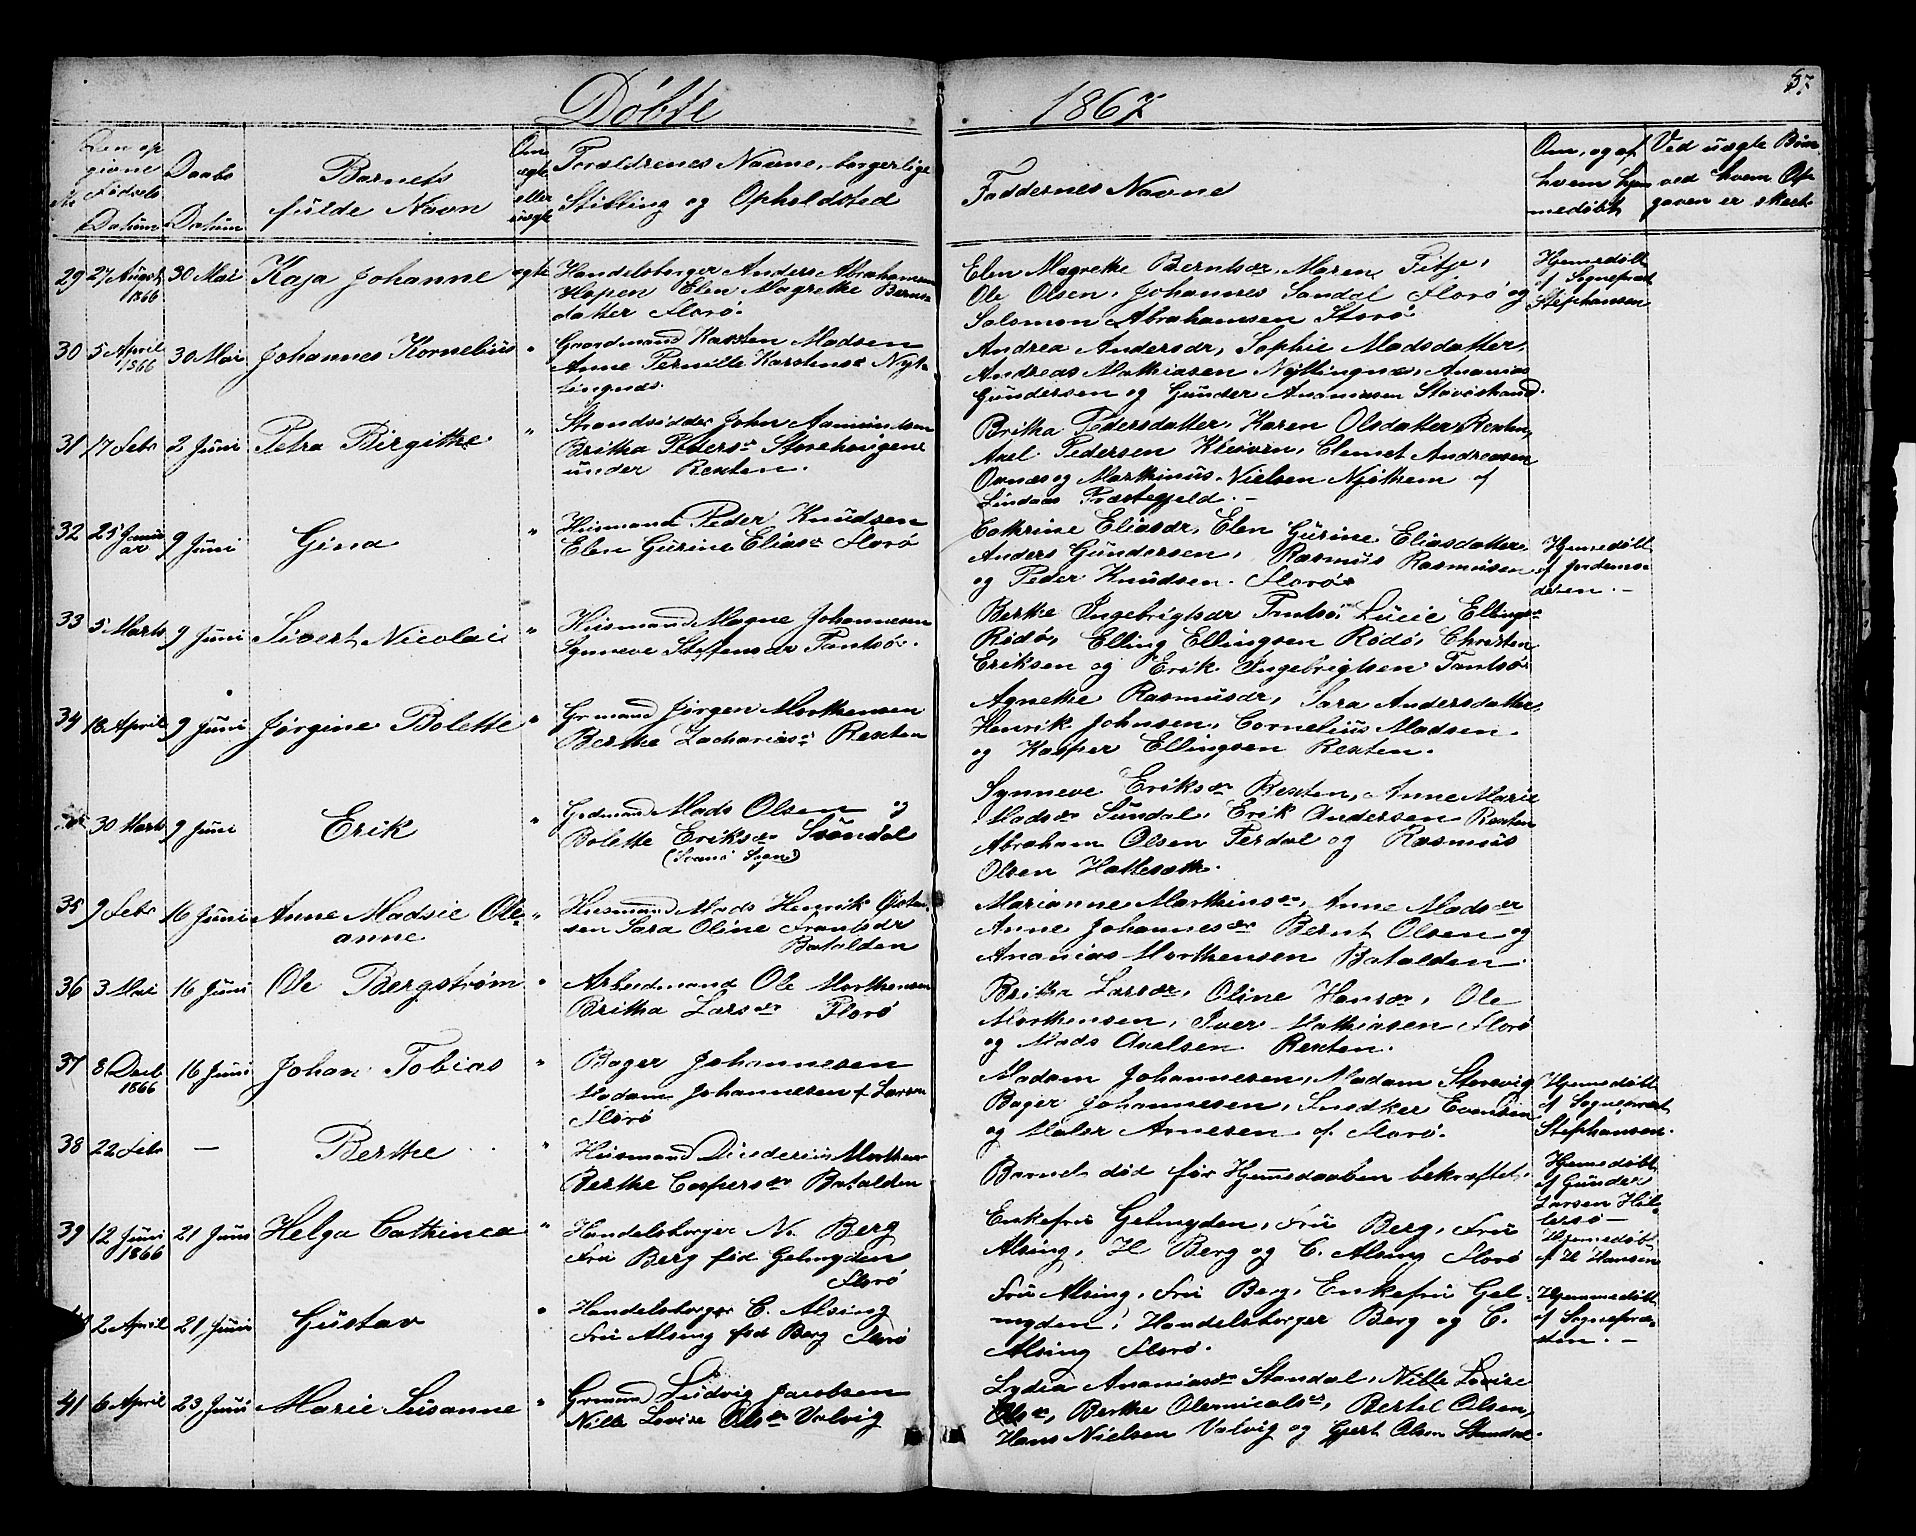 Döbte 1867
37.
No
Den op
givne
Födsels
Datum
Daabs
Datum
Barnets
fulde Navn
Om
ægte
eller
uægte
Forældrenes Navne, borgerlige
Stilling og Opholdsted
Faddernes Navne
Om, og af
hvem hjem
medöbt
Ved uægte Börn
ved hvem Op
gaven er skeet
29 27 August 1866 30 Mai Kaja Johanne ægte
Handelsborger Anders Abrahamsen
Hopen Elen Magrethe Bernts
datter Florö.
Elen Magrethe Berntsdr, Maren Fitje,
Ole Olsen, Johannes Sandal Florö og
Salomon Abrahamsen Storö
Hjemedöbt
af Sognepræst
Stephansen
30 5 April 1866 30 Mai Johannes Kornelius "
Gaardmand Karsten Madsen
Anne Pernille Karstensdr Nyt-
tingnæs.
Andrea Andersdr, Sophie Madsdatter,
Andreas Mathiasen Nyttingnæs, Ananias
Gundersen og Gunder Ananiasen Stavöstrand.
31 17 Febr 2 Juni Petra Birgithe "
Strandsidder John Aamundsen
Britha Pedersdr Storehougene
under Rexten.
Britha Pedersdatter, Karen Olsdatter Rexten,
Axel Pedersen Kleiven, Clemet Andreasen
Oxnæs og Marthinus Nielsen Njöthem af
Lindaas Præstegjeld. -
32 25 Janu ar 9 Juni Gina "
Huusmand Peder Knudsen
Elen Gurine Eliasdr Florö
Cathrine Eliasdr, Elen Gurine Eliasdatter,
Anders Gundersen, Rasmus Rasmusen
og Peder Knudsen. Florö
Hjemedöbt
af Jordemo-
deren. -
33 5 Marts 9 Juni Sivert Nicolai "
Huusmand Magne Johannesen
Synneve Steffensdr Tansö.
Berthe Ingebrigtsdr Tansö, Lucie Ellingsdr
Rödö, Elling Ellingsen Rödö, Christen
Eriksen og Erik Ingebrigtsen Tansö
34 18 April 9 Juni Jörgine Bolette "
Grmand Jörgen Morthensen
Berthe Zachariasdr Rexten
Agnethe Rasmusdr, Sara Andersdatter,
Henrik Johnsen, Cornelius Madsen
og Kasper Ellingsen Rexten.
30 Marts 9 Juni Erik "
Grdmand Mads Olsen og
Bolette Eriksdr Sröndal
(Svanö Sogn)
Synneve Eriksdr Rexten, Anne Marie
Madsdr Sundal, Erik Andersen Rexten
Abraham Olsen Ferdal og Rasmus
Olsen Hattesæth.
35 9 Febr 16 Juni Anne Madsie Ole- "
anne
Huusmand Mads Henrik Östen-
sen Sara Oline Frantsdr
Batalden
Marianne Marthinsdr, Anne Madsdr
Anne Johannesdr Bernt Olsen og
Ananias Morthensen Batalden
36 3 Mai 16 Juni Ole Bergström "
Arbeidmand Ole Morthensen
Britha Larsdr Florö
Britha Larsdr, Oline Hansdr, Ole
Morthensen, Iver Mathiasen, Florö
og Mads Axelsen Rexten.
37 8 Decb 1866 16 Juni Johan Tobias "
Bager Johannesen
Madam Johannesen f. Larsen
Florö
Madam Johannesen, Madam Storevig
Bager Johannesen, Snedker Evensen
og Maler Arnesen af Florö.
Hjemedöbt
af Sognepræst
Stephansen.
38 22 Febr - Berthe "
Huusmand Didrik Morthens
Berthe Caspersdr Batalden
Barnet död för Hjemedaaben bekræftet.
Hjemedöbt
af Gunder
Larsen Hil-
lersö -
39 12 Juni 1866 21 Juni Helga Cathinca "
Handelsborger N. Berg
Fru Berg föd Gelmyden
Florö
Enkefru Gelmyden, Fru Berg, Fru
Alsing, H Berg og C. Alsing Florö
Hjemedöbt
af H Hansen
2 April 21 Juni Gustav "
Handelsborger C. Alsing
Fru Alsing föd Berg Florö
Fru Alsing, Fru Berg, Enkefru Gel-
myden, Handelsborger Berg og C.
Alsing Florö.
Hjemmedöbt
af Sognepræ-
sten. -
41 6 April 23 Juni Marie Susanne "
Grmand Ludvig Jacobsen
Nille Lovise Olsdr Valvig
Lydia Ananiasdr Standal, Nille Lovise
Olsdr, Berthe Olemicalsdr, Bertel Olsen,
Hans Nielsen Valvig og Gjert Olsen Standal.